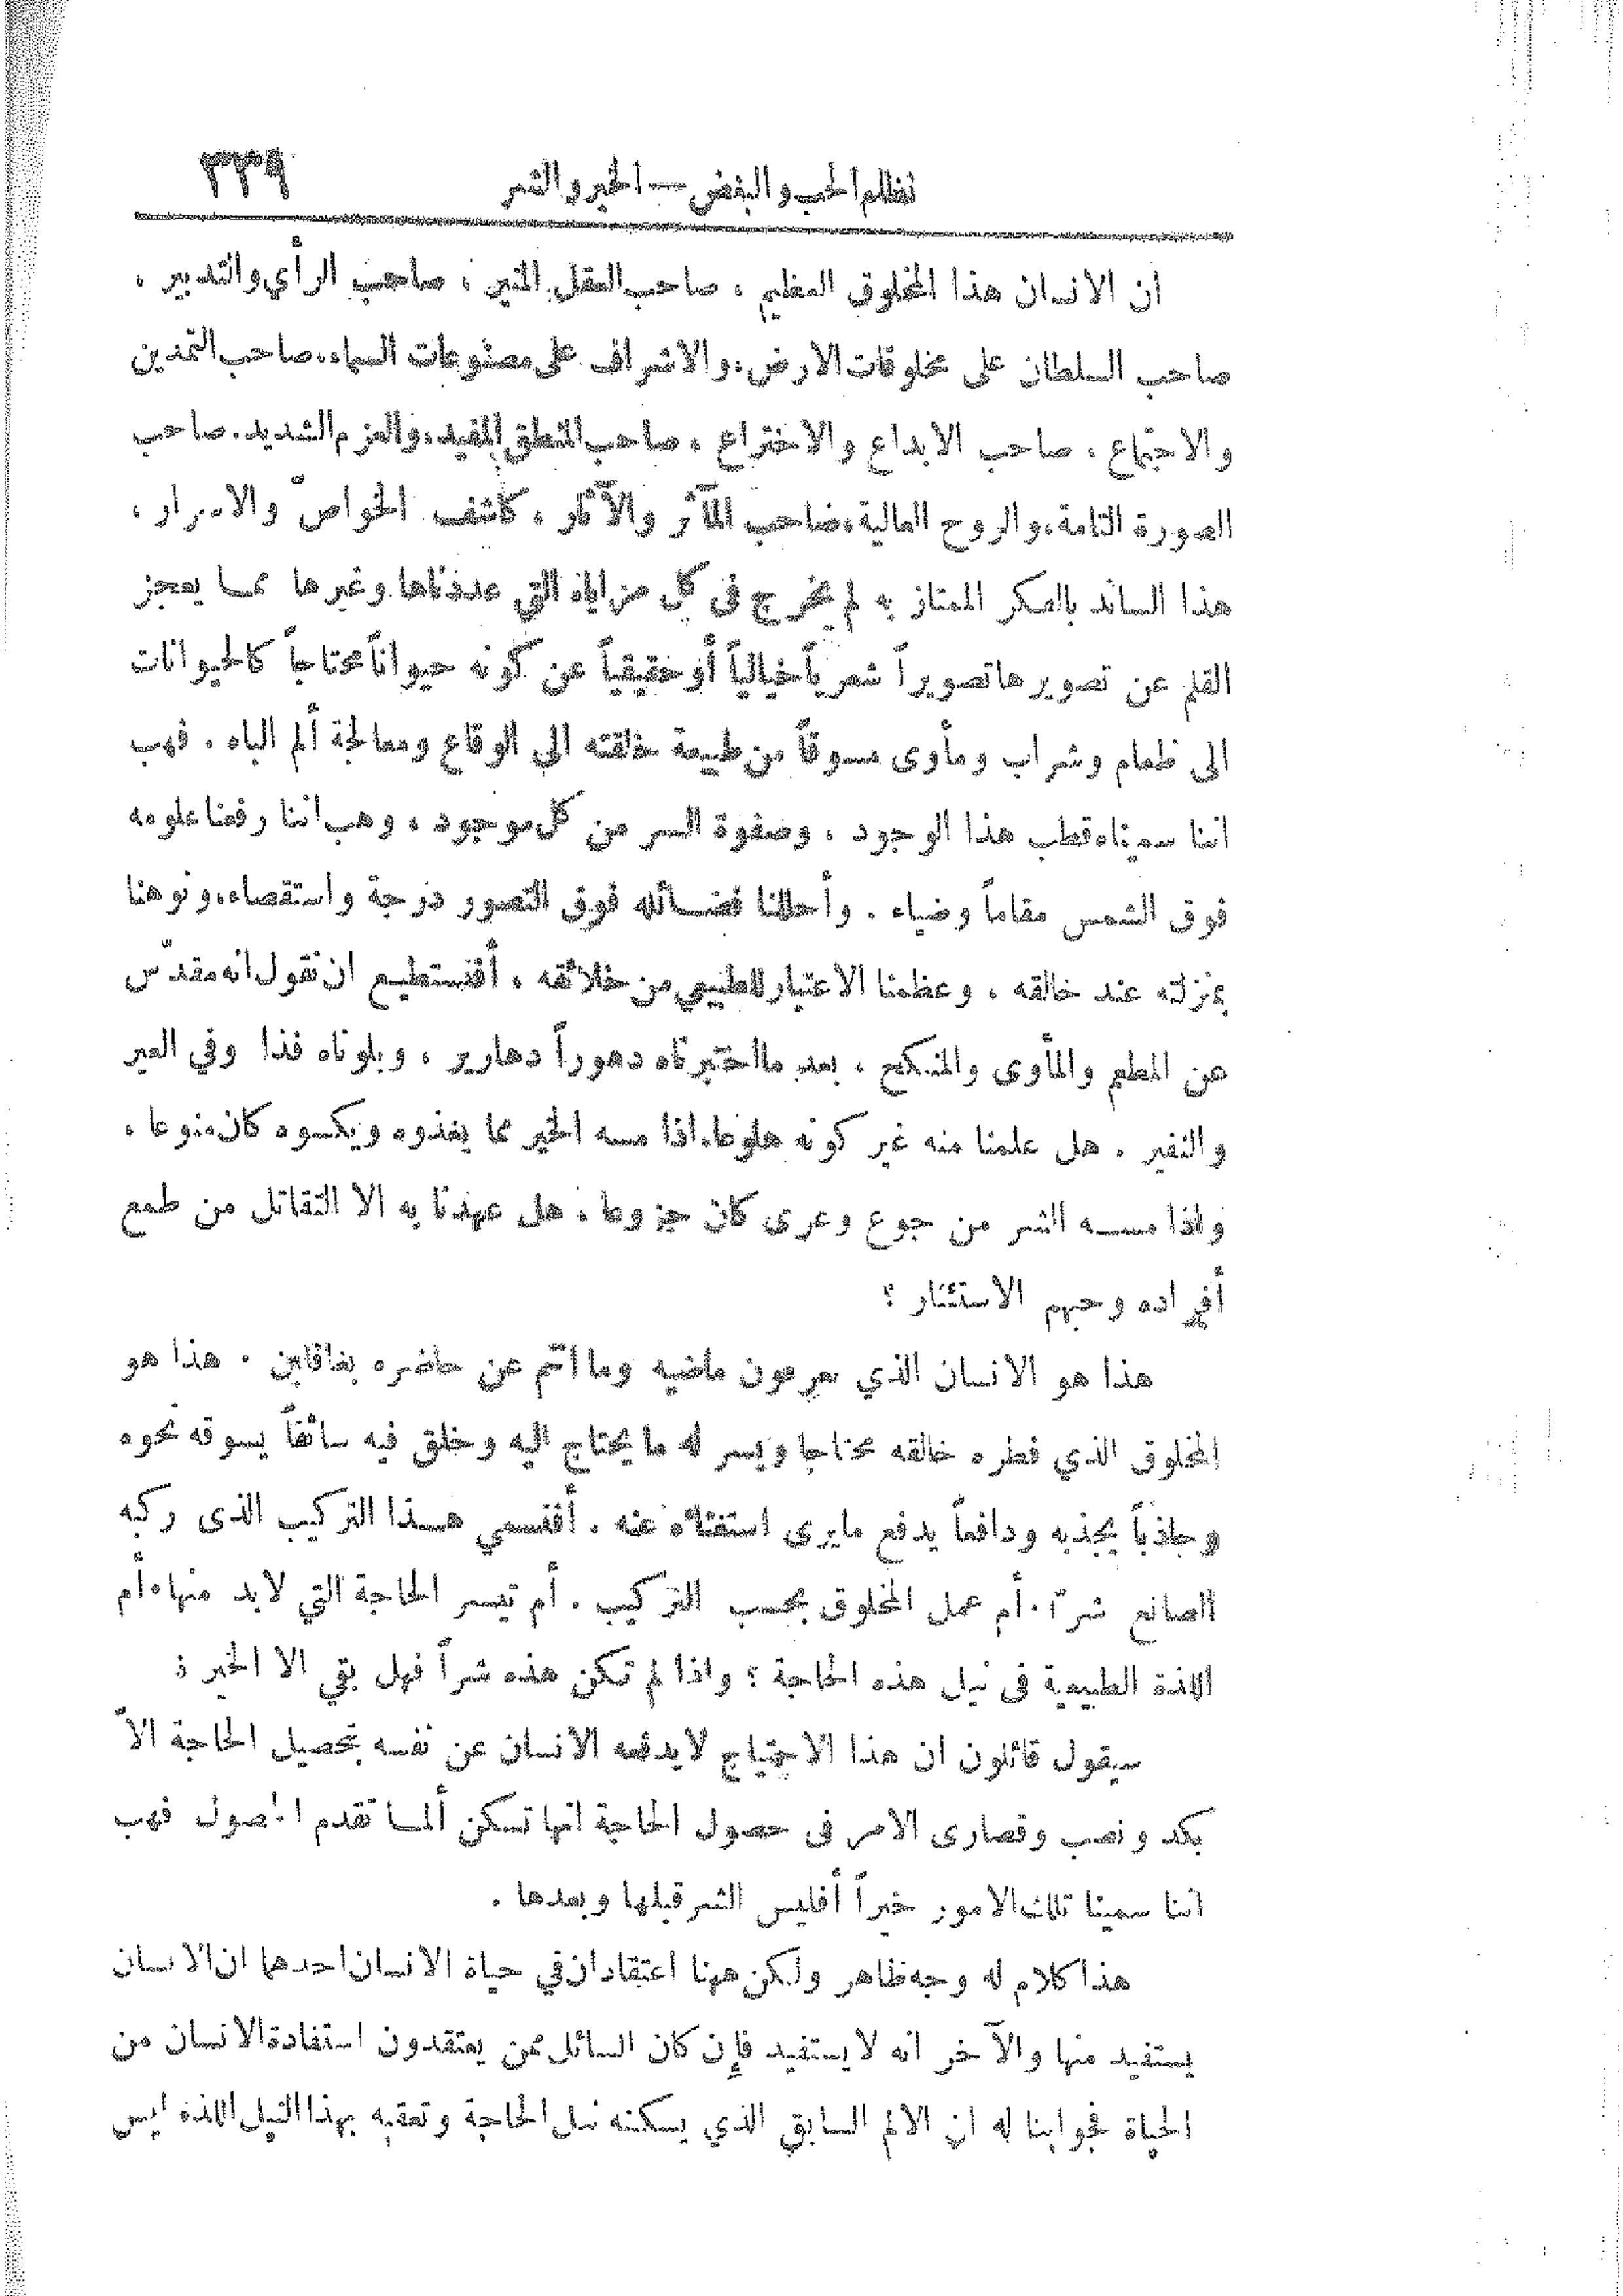 نظام الحب والبغض — الخير والشر ٣٣٩
ان الانسان هذا المخلوق العظيم ، صاحب العقل المنير ، صاحب الرأي والتدبير ،
صاحب السلطان على مخلوقات الارض ، والاشراف على مصنوعات السماء ، صاحب التمدين
والاجتماع ، صاحب الابداع والاختراع ، صاحب المنطق المفيد ، والعزم الشديد . صاحب
الصورة التامة ، والروح العالية ، صاحب المآثر والآثار ، كاشف الخواصّ والاسرار ،
هذا السائد بالفكر الممتاز به لم يخرج فى كل مزاياه التي عددناها وغيرها مما يعجز
القلم عن تصويرها تصويراً شعرياً خيالياً أو حقيقياً عن كونه حيواناً محتاجاً كالحيوانات
الى طعام وشراب ومأوى مسوقاً من طبيعة خلقته الى الوقاع ومعالجة ألم الباه . فهب
اننا سميناه قطب هذا الوجود ، وصفوة السر من كل موجود ، وهب اننا رفعنا علومه
فوق الشمس مقاماً وضياء . وأحللنا فضائله فوق التصور درجة واستقصاء ، ونوهنا
بمنزلته عند خالقه ، وعظمنا الاعتبار للطبيعي من خلائقه ، أفنستطيع ان نقول انه مقدّس
عن المطعم والمأوى والمنكح ، بعد ما اختبرناه دهوراً دهارير ، وبلوناه فذا وفي العير
والنفير . هل علمنا منه غير كونه هلوعا ، اذا مسه الخير مما يغذوه ويكسوه كان منوعا ،
واذا مسه الشر من جوع وعرى كان جزوعا ، هل عهدنا به الا التقاتل من طمع
أفراده وحبهم الاستئثار ؟
هذا هو الانسان الذي تعرفون ماضيه وما انتم عن حاضره بغافلين . هذا هو
المخلوق الذي فطره خالقه محتاجا ويسر له ما يحتاج اليه وخلق فيه سائقاً يسوقه نحوه
وجاذباً يجذبه ودافعاً يدفع ما يرى استغناءه عنه . أفنسمي هذا التركيب الذى ركبه
الصانع شرّا . أم عمل المخلوق بحسب التركيب . أم تيسر الحاجة التي لابد منها . أم
اللذة الطبيعية فى نيل هذه الحاجة ؟ واذا لم تكن هذه شراً فهل بقي الا الخير ؟
سيقول قائلون ان هذا الاحتياج لا يدفعه الانسان عن نفسه بتحصيل الحاجة الاّ
بكد ونصب وقصارى الامر فى حصول الحاجة انها تسكن ألما تقدم الحصول فهب
اننا سمينا تلك الامور خيراً أفليس الشر قبلها وبعدها .
هذا كلام له وجه ظاهر ولكن ههنا اعتقادان في حياة الانسان احدهما ان الانسان
يستفيد منها والآخر انه لا يستفيد فإن كان السائل ممن يعتقدون استفادة الانسان من
الحياة فجوابنا له ان الالم السابق الذي يسكنه نيل الحاجة وتعقبه بهذا النيل اللذه ليس